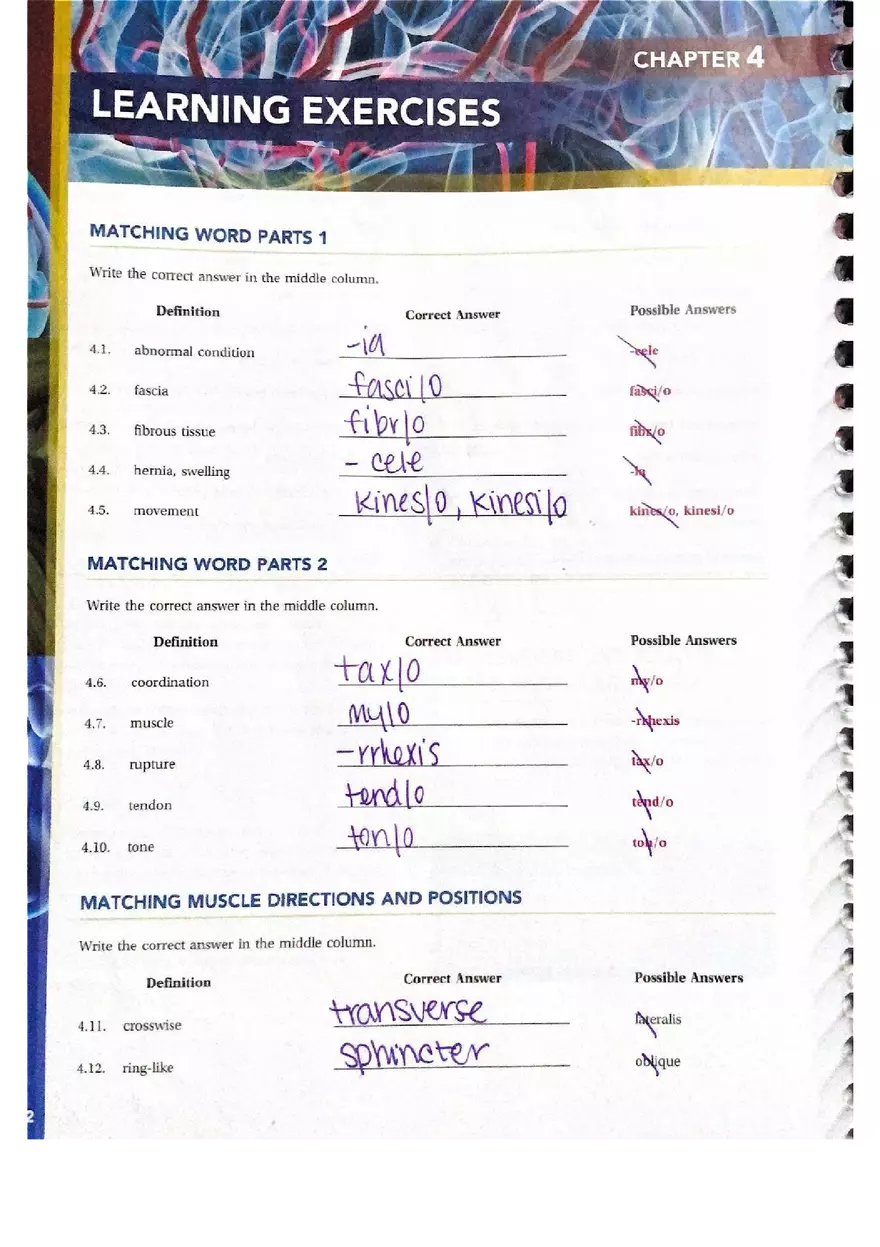 CHAPTER 4
LEARNING EXERCISES
MATCHING WORD PARTS 1
Write the correct answer in the middle column.
Definition Correct Answer Possible Answers
4.1. abnormal condition -ia -cele
4.2. fascia fasci/o fasci/o
4.3. fibrous tissue fibr/o fibr/o
4.4. hernia, swelling - cele -ia
4.5. movement kines/o, kinesi/o kines/o, kinesi/o
MATCHING WORD PARTS 2
Write the correct answer in the middle column.
Definition Correct Answer Possible Answers
4.6. coordination tax/o my/o
4.7. muscle my/o -rrhexis
4.8. rupture -rrhexis tax/o
4.9. tendon tend/o tend/o
4.10. tone ton/o ton/o
MATCHING MUSCLE DIRECTIONS AND POSITIONS
Write the correct answer in the middle column.
Definition Correct Answer Possible Answers
4.11. crosswise transverse lateralis
4.12. ring-like sphincter oblique
2